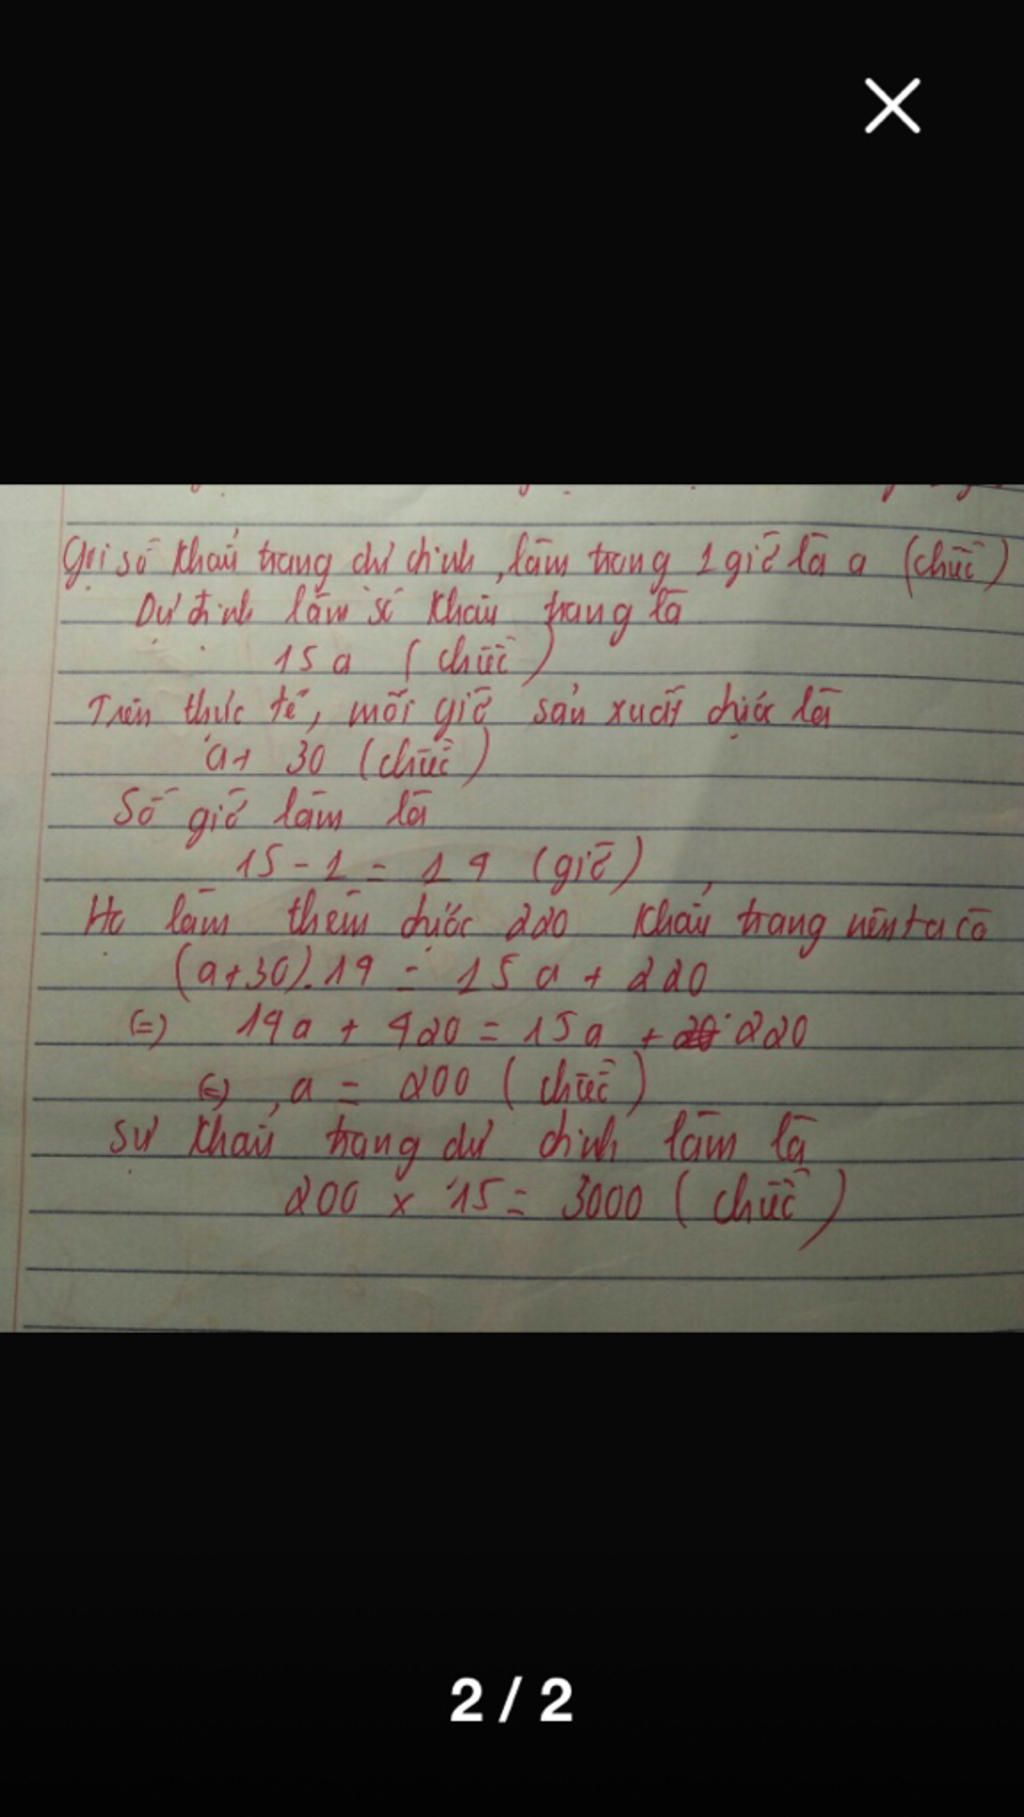 Gọi số khẩu trang dự định làm trong 1 giờ là a (chiếc)
Dự định làm số khẩu trang là
15a (chiếc)
Trên thực tế, mỗi giờ sản xuất được là
a + 30 (chiếc)
Số giờ làm là
15 - 1 = 14 (giờ)
Họ làm thêm được 220 khẩu trang nên ta có
(a+30).14 = 15a + 220
(=) 14a + 420 = 15a + 220
(=) a = 200 (chiếc)
Số khẩu trang dự định làm là
200 x 15 = 3000 (chiếc)
2 / 2